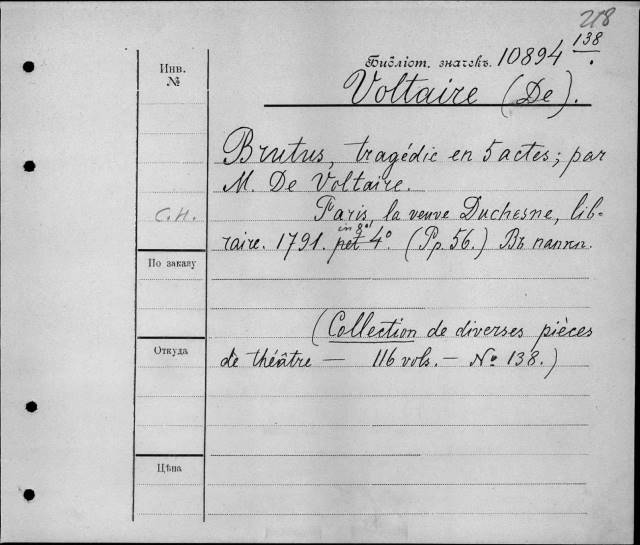 218
Инв.
№
Библіот. значекъ. 10894 138
Voltaire (De).
Brutus, tragédie en 5 actes; par
M. De Voltaire.
С.Н.
Paris, la veuve Duchesne, lib-
raire. 1791. pet 4° (Pp. 56.) Въ папкѣ.
in 8°
По заказу
(Collection de diverses pièces
Откуда
de théâtre — 116 vols. — № 138.)
Цѣна